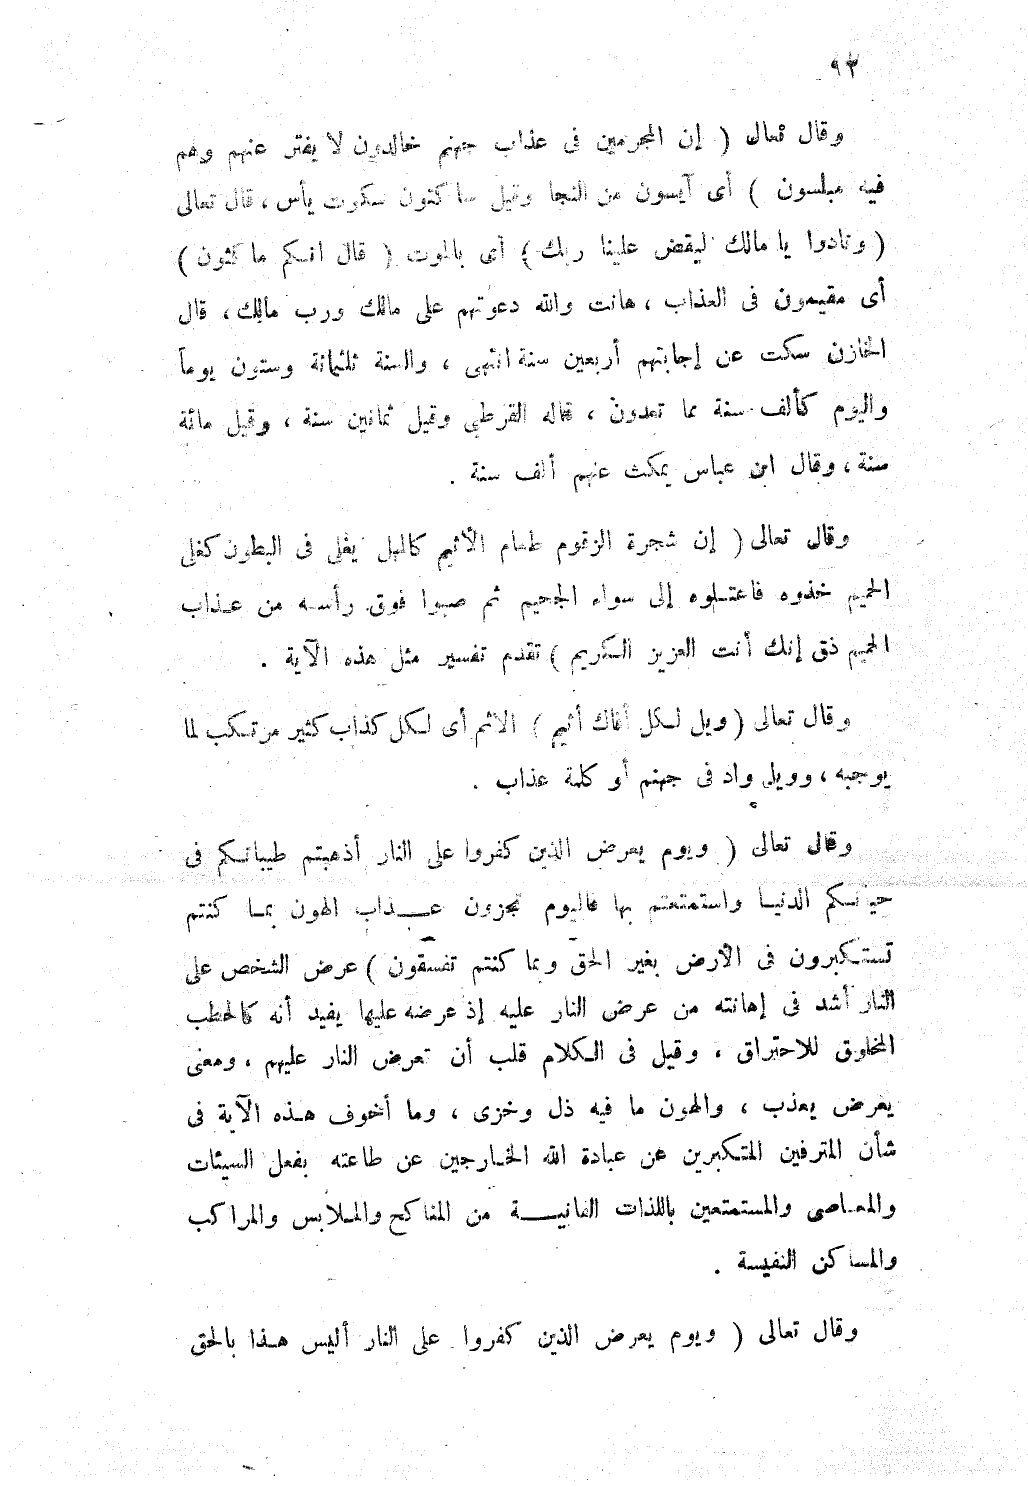 ٩٣
وقال تعالى ( إن المجرمين فى عذاب جهنم خالدون لا يفتر عنهم وهم
فيه مبلسون ) أى آيسون من النجا وقيل ساكتون سكوت يأس ، قال تعالى
( ونادوا يا مالك ليقض علينا ربك ) أى بالموت ( قال انكم ماكثون )
أى مقيمون فى العذاب ، هانت والله دعوتهم على مالك ورب مالك ، قال
الخازن سكت عن إجابتهم أربعين سنة انتهى ، والسنة ثلثمائة وستون يوماً
واليوم كألف سنة مما تعدون ، قاله القرطبى وقيل ثمانين سنة ، وقيل مائة
سنة ، وقال ابن عباس يمكث عنهم ألف سنة .
وقال تعالى ( إن شجرة الزقوم طعام الأثيم كالمهل يغلى فى البطون كغلى
الحميم خذوه فاعتلوه إلى سواء الجحيم ثم صبوا فوق رأسه من عذاب
الحميم ذق إنك أنت العزيز الكريم ) تقدم تفسير مثل هذه الآية .
وقال تعالى ( ويل لكل أفاك أثيم ) الاثم أى لكل كذاب كثير مرتكب لما
يوجبه ، وويل واد فى جهنم أو كلمة عذاب .
وقال تعالى ( ويوم يعرض الذين كفروا على النار أذهبتم طيباتكم فى
حياتكم الدنيا واستمتعتم بها فاليوم تجزون عذاب الهون بما كنتم
تستكبرون فى الأرض بغير الحق وبما كنتم تفسقون ) عرض الشخص على
النار أشد فى إهانته من عرض النار عليه إذ عرضه عليها يفيد أنه كالحطب
المخلوق للاحتراق ، وقيل فى الكلام قلب أن تعرض النار عليهم ، ومعنى
يعرض يعذب ، والهون ما فيه ذل وخزى ، وما أخوف هذه الآية فى
شأن المترفين المتكبرين عن عبادة الله الخارجين عن طاعته بفعل السيئات
والمعاصى والمستمتعين باللذات الفانية من المناكح والملابس والمراكب
والمساكن النفيسة .
وقال تعالى ( ويوم يعرض الذين كفروا على النار أليس هذا بالحق